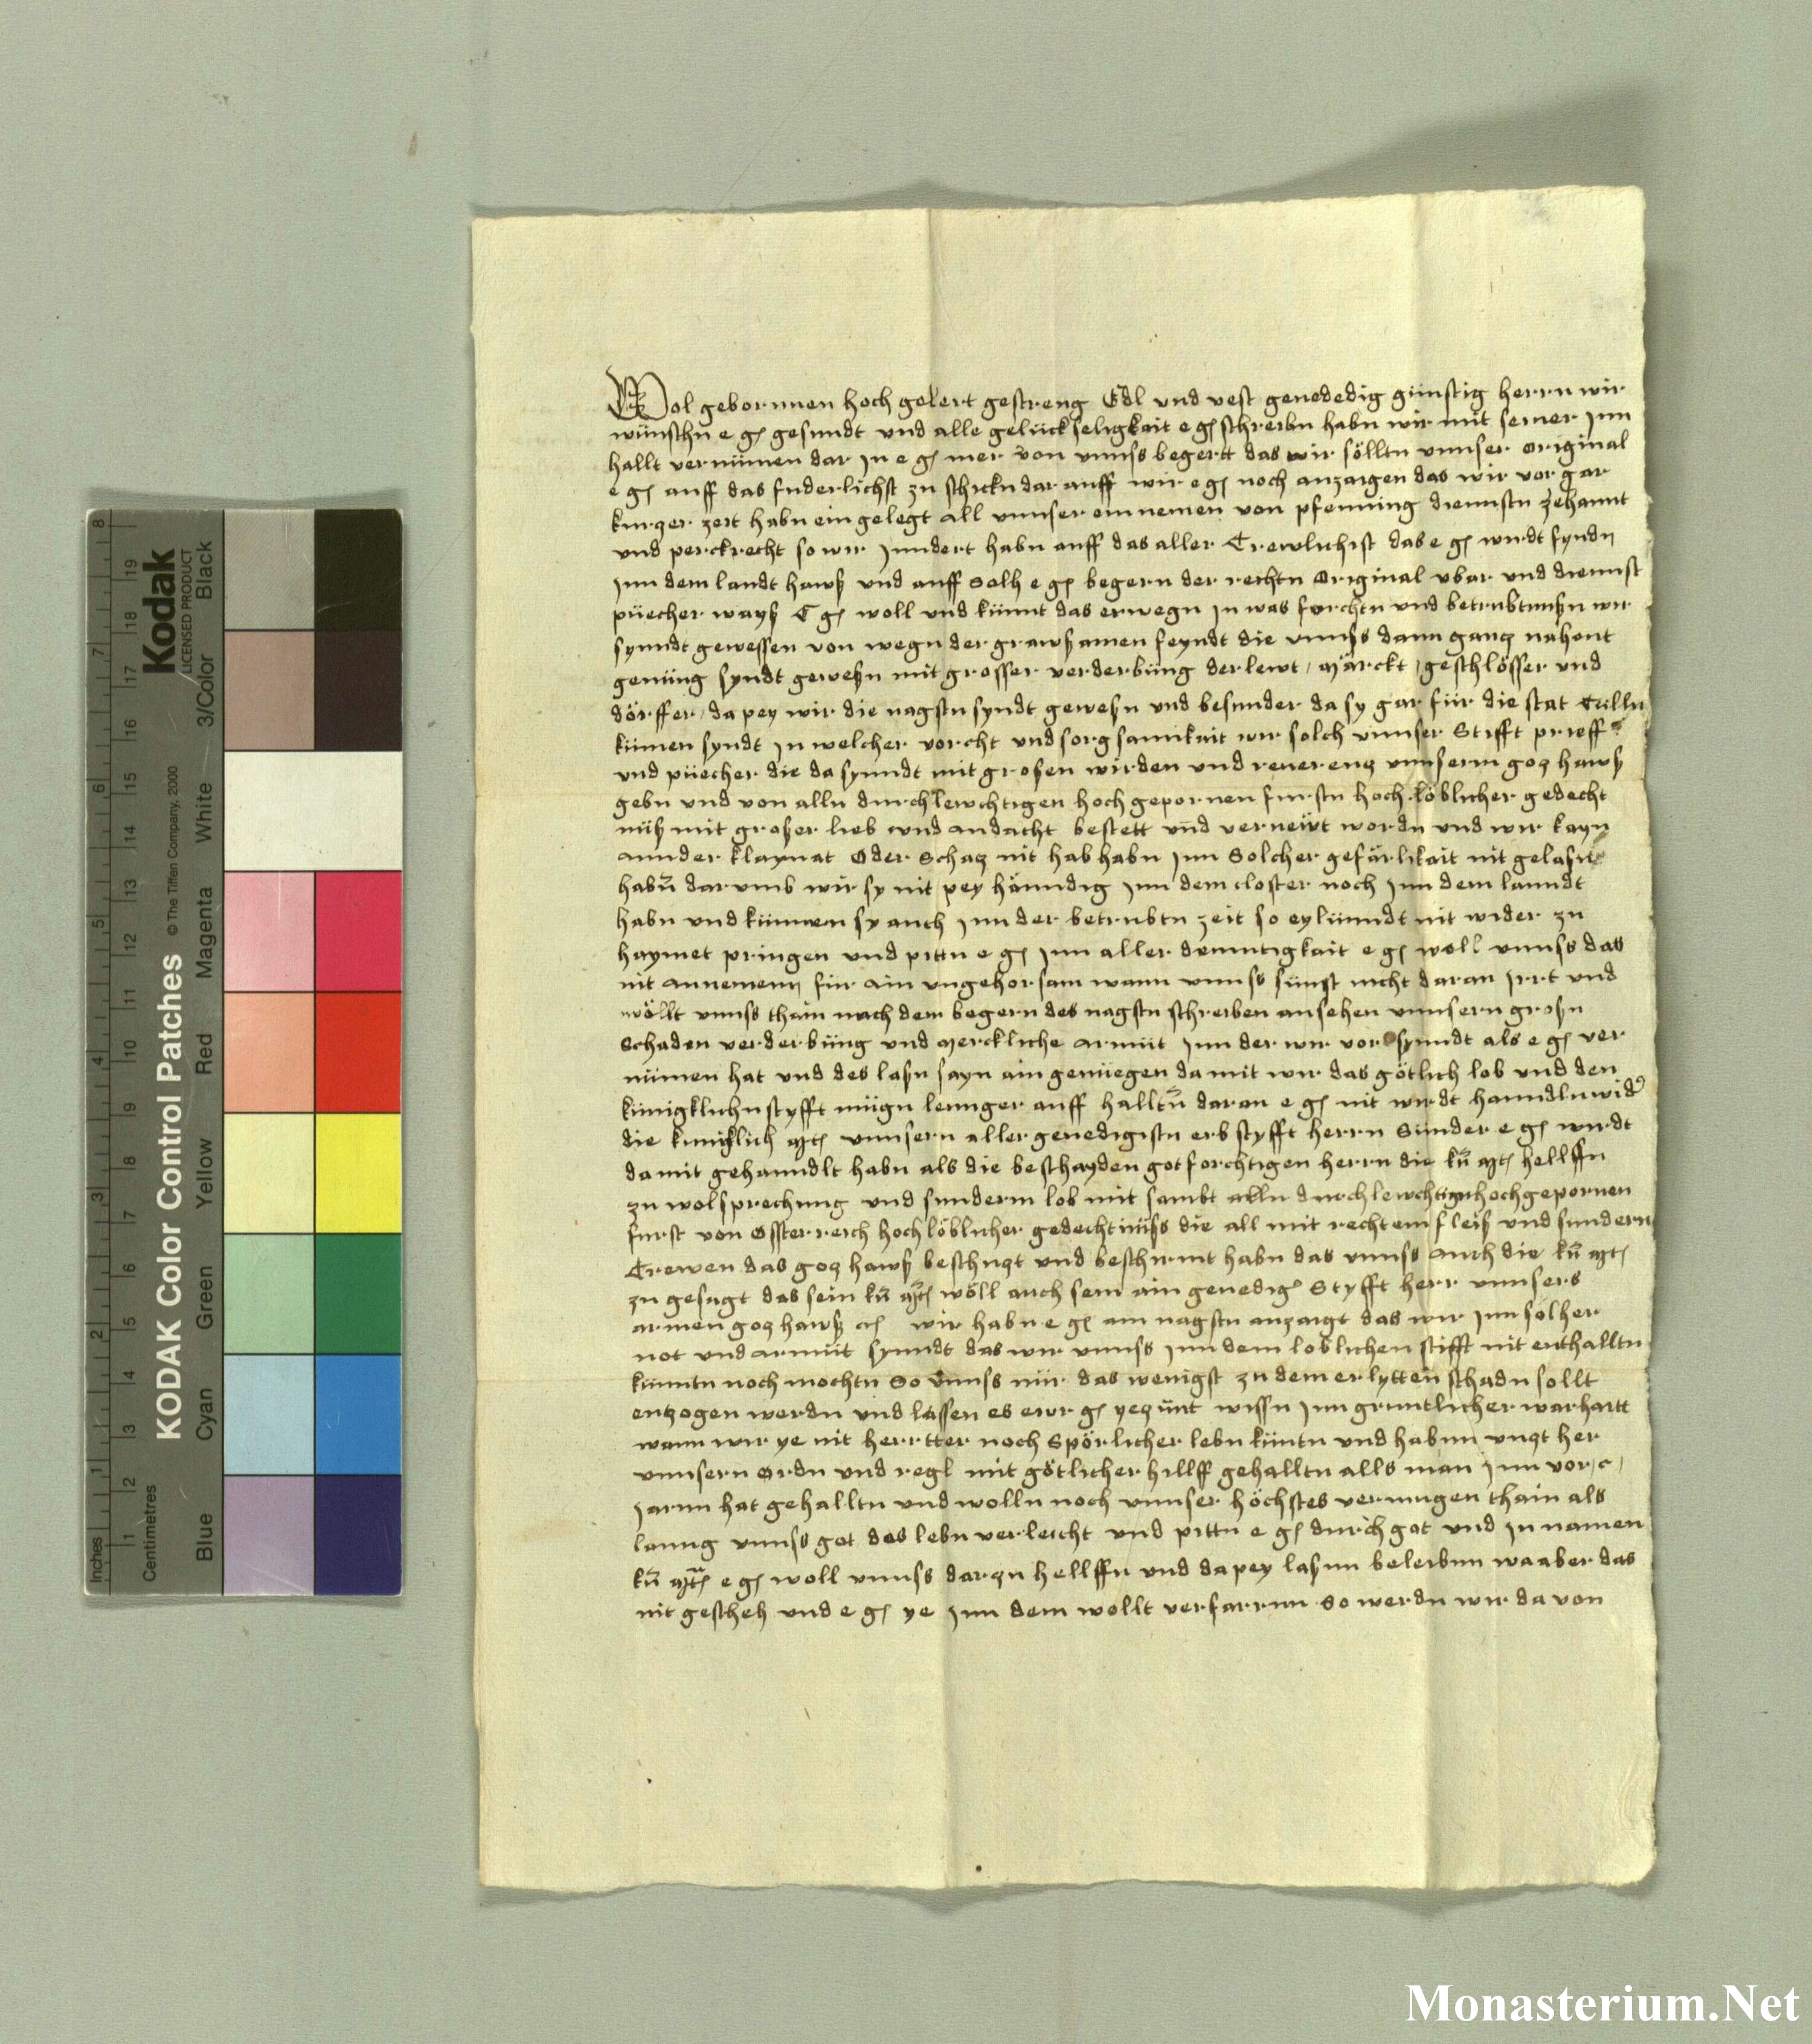 Wol gebornnen hoch gelert gestreng Edl vnd vest genededig günstig herrn wir
wünschn e g gesundt vnd alle gelückseligkait e g schreibn habn wir mit seiner Inn
hallt vernümen dar In e g mer von vnnss begertt das wir söllten vnnser original
e g auff das fuderlichst zu schickn dar auff wir e g noch anzaigen das wir vor gar
kurtzer zeit habn ein gelegt all vnnser einnemen von pfenning diennstn zehannt
vnd perckrecht so wir Inndert habn auff das aller Trewlichist das e g wirdt fyndn
Inn dem landt hawß vnd auff Solh e g begern der rechtn Original vbar vnd diennst
püecher wayß E g woll vnd künnt das erwegn In was forchtn vnd betrubtnußn wir
synndt gewessen von wegn der grawßamen feyndt die vnnss dann gantz nahent
genüng syndt geweßn mit grosser verderbüng der lewt / Märckt / geschlösser vnd
dörffer / da pey wir die nagstn syndt geweßn vnd besunder da sy gar für die stat Tulln
kümen syndt In welcher vorcht vnd sorgsamikait wir solch vnnser Stifft prieff
vnd püecher die da synndt mit großen wirden vnd reuerentz vnnserm gotz hawß
gebn vnd von alln durchlewchtigen hoch gepornen furstn hoch löblicher gedecht
nüß mit großer lieb vnd andacht bestett vnd vernewt wordn vnd wir kayn
annder klaynat Oder Schatz nit hab habn Inn Solcher gefärlikait nit gelaßn
habn dar vmb wir sy nit pey hänndig Inn dem closter noch Inn dem lanndt
habn vnd künnen sy auch Inn der betrubtn zeit so eylünndt nit wider zu
haymet pringen vnd pittn e g Inn aller demutigkait e g woll vnnss das
nit annemenn für ain vngehorsam wann vnnss sünst nicht daran Irrt vnd
wöllt vnnss thain nach dem begern des nagstn schreiben ansehen vnnsern großn
Schaden verderbüng vnd Merckliche armüt Inn der wir vor synndt als e g ver
nümen hat vnd des laßn sayn ain genüegen da mit wir das götlich lob vnd den
künigklichn styfft mügn lennger auff halltn daran e g nit wirdt hanndln wider
die kunicklich Mt vnnsern aller genedigistn erb styfft herrn Sünder e g wirdt
da mit gehanndlt habn als die beschayden gotforchtigen herrn die kü Mt hellffn
zu wolsprechung vnd sunderm lob mit sambt alln durchlewchtign hochgepornen
furst von Ossterreich hoch löblicher gedechtnüss die all mit rechtem fleiß vnd sundern
Trewen das gotz hawß beschutzt vnd beschirmt habn das vnnss auch die kü Mt
zu gesagt das sein kü Mt wöll auch sein ain genedig Styfft herr vnnsers
armen gotz hawß wir habn e g am nagstn anzaigt das wir Inn solher
not vnd armüt synndt das wir vnnss Inn dem loblichen stifft nit enthalltn
künntn noch mochtn So vnnss nür das wenigst zu dem erlytten schadn sollt
entzogen werdn vnd lassen es ewr g yetzünt wissn Inn gruntlicher warhaitt
wann wir ye nit herrtter noch Spörlicher lebn küntn vnd habnn vntzt her
vnnsern Ordn vnd regl mit götlicher hillff gehalltn alls man Inn vor c
Jarnn hat gehalltn vnd wolln noch vnnser höchstes vermugen thain als
lanng vnnss got des lebn verleicht vnd pittn e g durch got vnd In namen
kü Mt e g woll vnnss dar zu hellffn vnd da pey laßnn beleibnn wa aber das
nit gescheh vnd e g ye Inn dem wollt verfarrnn So werdn wir da von
KODAK Color Control Patches
© The Tiffen Company, 2000
Kodak
LICENSED PRODUCT
Inches 1 2 3 4 5 6 7 8
Centimetres 1 2 3 4 5 6 7 8 9 10 11 12 13 14 15 16 17 18 19
Blue Cyan Green Yellow Red Magenta White 3/Color Black
Monasterium.Net